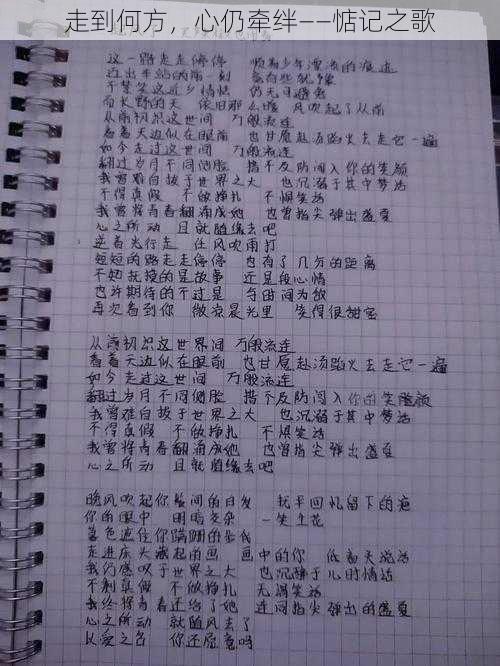 走到何方，心仍牵绊——惦记之歌
这一路走走停停 顺着少年漂流的痕迹
迈出车站的前一刻 竟有些犹豫
不禁笑这近乡情怯 仍无可避免
而长野的天 依旧那么暖 风吹起了从前
从前初识这世间 万般流连
看着天边似在眼前 也甘愿赴汤蹈火去走它一遍
如今走过这世间 万般流连
翻过岁月不同侧脸 措不及防闯入你的笑颜
我曾难自拔于世界之大 也沉溺于其中梦话
不得真假 不做挣扎 不惧笑话
我曾将青春翻涌成她 也曾指尖弹出盛夏
心之所动 且就随缘去吧
逆着光行走 任风吹雨打
短短的路走走停停 也有了几分的距离
不知抚摸的是故事 还是段心情
也许期待的不过是 与时间为敌
再次看到你 微凉晨光里 笑得很甜蜜
从前初识这世间 万般流连
看着天边似在眼前 也甘愿赴汤蹈火去走它一遍
如今走过这世间 万般流连
翻过岁月不同侧脸 措不及防闯入你的笑颜
我曾难自拔于世界之大 也沉溺于其中梦话
不得真假 不做挣扎 不惧笑话
我曾将青春翻涌成她 也曾指尖弹出盛夏
心之所动 且就随缘去吧
晚风吹起你鬓间的白发 抚平回忆留下的疤
你的眼中 明暗交杂 一笑生花
暮色遮住你蹒跚的步伐
走进床头藏起的画 画中的你 低着头说话
我仍感叹于世界之大 也沉醉于儿时情话
不剩真假 不做挣扎 无谓笑话
我终将青春还给了她 连同指尖弹出的盛夏
心之所动 就随风去了
以爱之名 你还愿意吗